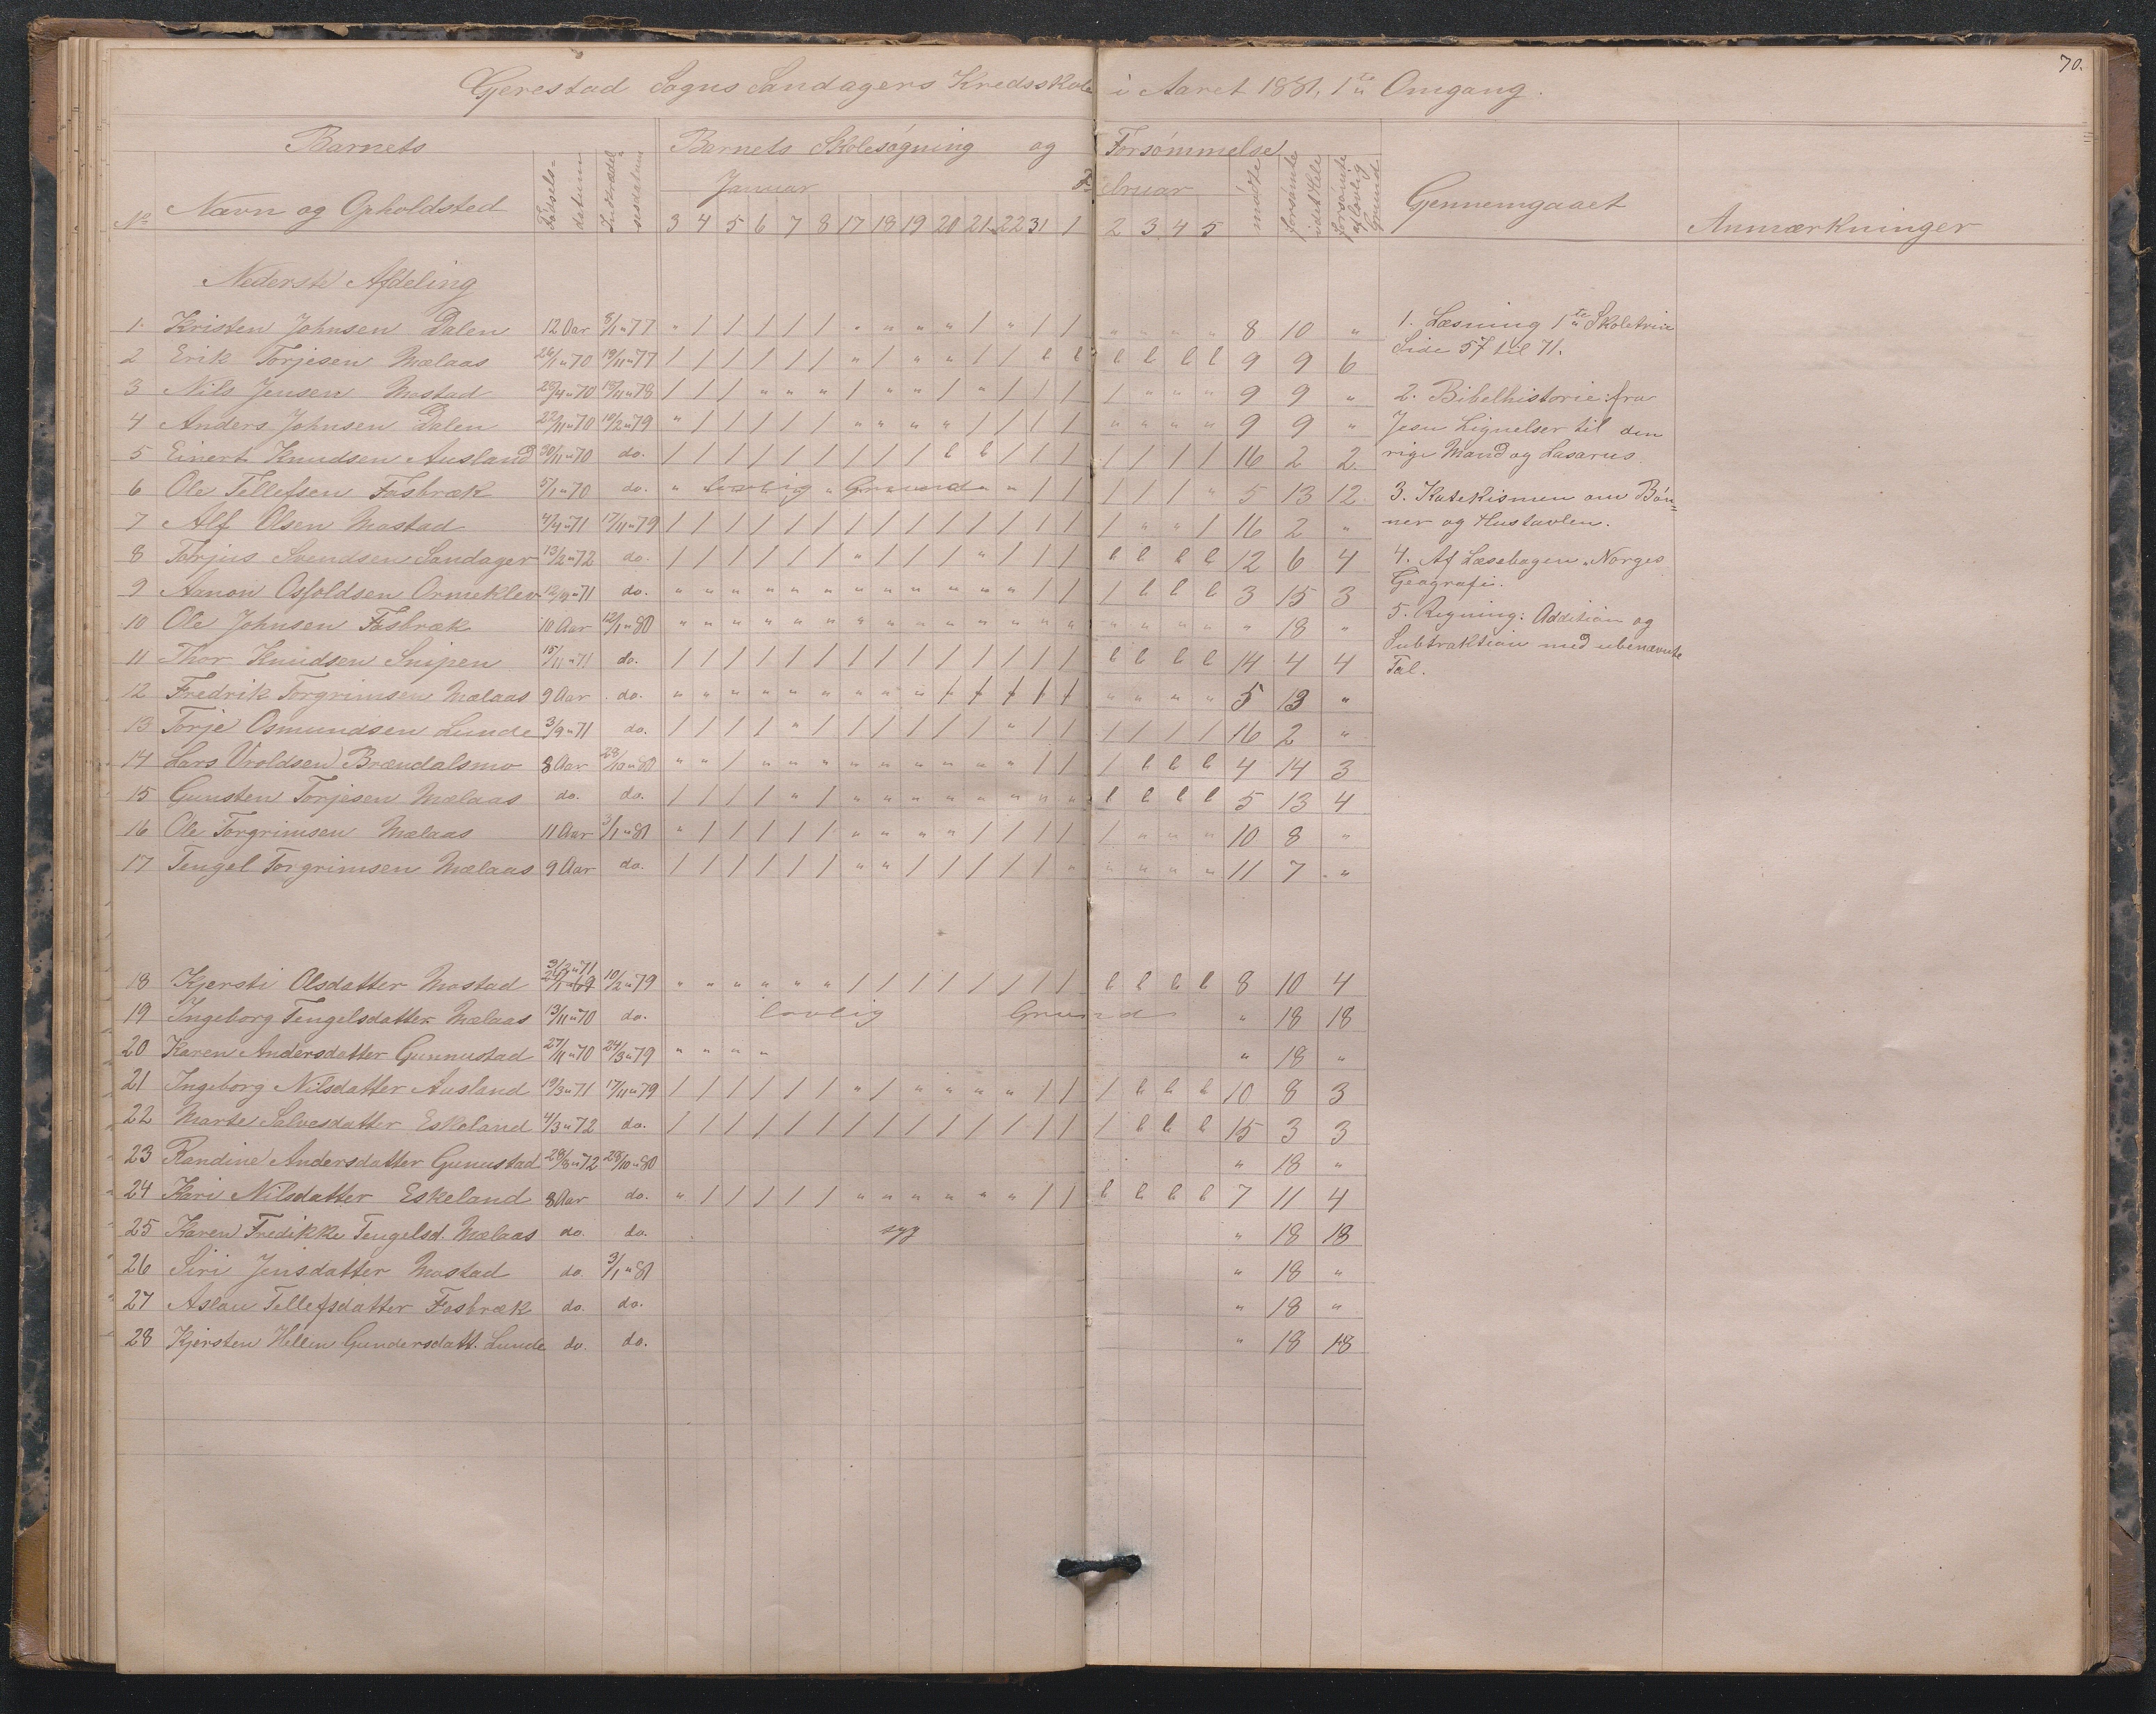 70.
Gjerestad Sogns Sandagers Kredsskole i Aaret 1881, 1ste Omgang.
Barnets Barnets Skolesøgning og Forsømmelse
Januar Februar
No Navn og Opholdsted Fødselsdatum Indtrædelsesdatum 3 4 5 6 7 8 17 18 19 20 21 22 31 1 2 3 4 5 mødte forsømte i det Hele forsømte af lovlig Grund Gennemgaaet Anmærkninger
Nederste Afdeling
1. Kristen Johnsen Dalen 12 Aar 8/1 " 77 " / / / / / " " " " / " / / " " " " 8 10 "
2 Erik Torjesen Mælaas 26/1 " 70 19/11 " 77 / / / / / / " / " " / / l l l l l l 9 9 6
3 Nils Jensen Mostad 28/4 " 70 18/11 " 78 / / / " " " / " " / " / / / / " " " 9 9 "
4 Anders Johnsen Dalen 22/11 " 70 10/2 " 79 " / / / / / " " " " / / / / " " " " 9 9 "
5 Einert Knudsen Ausland 30/11 " 70 do. / / / / / / / / / l l / / / / / / / 16 2 2.
6 Ole Tellefsen Fosbræk 5/1 " 70 do. " lovlig Grund " / / / / / " 5 13 12
7 Alf Olsen Mostad 4/4 " 71 17/11 " 79 / / / / / / / / / / / / / / / " " / 16 2 "
8 Torjus Svendsen Sandager 13/2 " 72 do. / / / / / / " / / / " / / / l l l l 12 6 4
9 Aanon Osfoldsen Ormeklev 12/9 " 71 do. " " " " " " " " " " " " / / / l l l 3 15 3
10 Ole Johnsen Fosbræk 10 Aar 12/1 " 80 " " " " " " " " " " " " " " " " " " " 18 "
11 Thor Knudsen Snipen 15/11 " 71 do. / / / / / / / / / / / / / / l l l l 14 4 4
12 Fredrik Torgrimsen Mælaas 9 Aar do. " " " " " " " " " / / / / / " " " " 5 13 "
13 Torje Osmundsen Lunde 3/9 " 71 do. / / / / " / / / / / / " / / / / / / 16 2 "
14 Lars Vroldsen Brændalsmo 8 Aar 28/10 " 80 " " / " " " " " " " " " / / / l l l 4 14 3
15 Gunsten Torjesen Mælaas do. do. / / / / " / " " " " " " " " l l l l 5 13 4
16 Ole Torgrimsen Mælaas 11 Aar 3/1 " 81 " / / / / / " " " " / / / / / " " " 10 8 "
17 Tengel Torgrimsen Mælaas 9 Aar do. / / / / / / " " / / / / / " " " " " 11 7 "
18 Kjersti Olsdatter Mostad 3/2 " 71 10/2 " 79 " " " " " " / / / / / / / / l l l l 8 10 4
19 Ingeborg Tengelsdatter Mælaas 13/11 " 70 do. lovlig Grund " 18 18
20 Karen Andersdatter Gunnustad 27/11 " 70 24/3 " 79 " " " " " 18 "
21 Ingeborg Nilsdatter Ausland 19/3 " 71 17/11 " 79 / / / / / / " / " " " " / / / l l l 10 8 3
22 Marte Salvesdatter Eskeland 4/3 " 72 do. / / / / / / / / / / / / / / / l l l 15 3 3
23 Randine Andersdatter Gunustad 28/8 " 72 28/10 " 80 " 18 "
24 Kari Nilsdatter Eskeland 8 Aar do. " / / / / / " " " " " " / / l l l l 7 11 4
25 Karen Fredikke Tengelsd. Mælaas do. do. syg " 18 18
26 Siri Jensdatter Mostad do. 3/1 " 81 " 18 "
27 Aslau Tellefsdatter Fosbræk do. do. " 18 "
28 Kjersten Hellen Gundersdatt. Lunde do. do. " 18 18
1. Læsning 1ste Skoletrin
Side 57 til 71.
2. Bibelhistorie: fra
Jesu Lignelser til den
rige Mand og Lasarus.
3. Katekismen om Bøn=
ner og Hustavlen.
4. Af Læsebogen „Norges
Geografi.
5. Regning: Addition og
Subtraktion med ubenævnte
Tal.